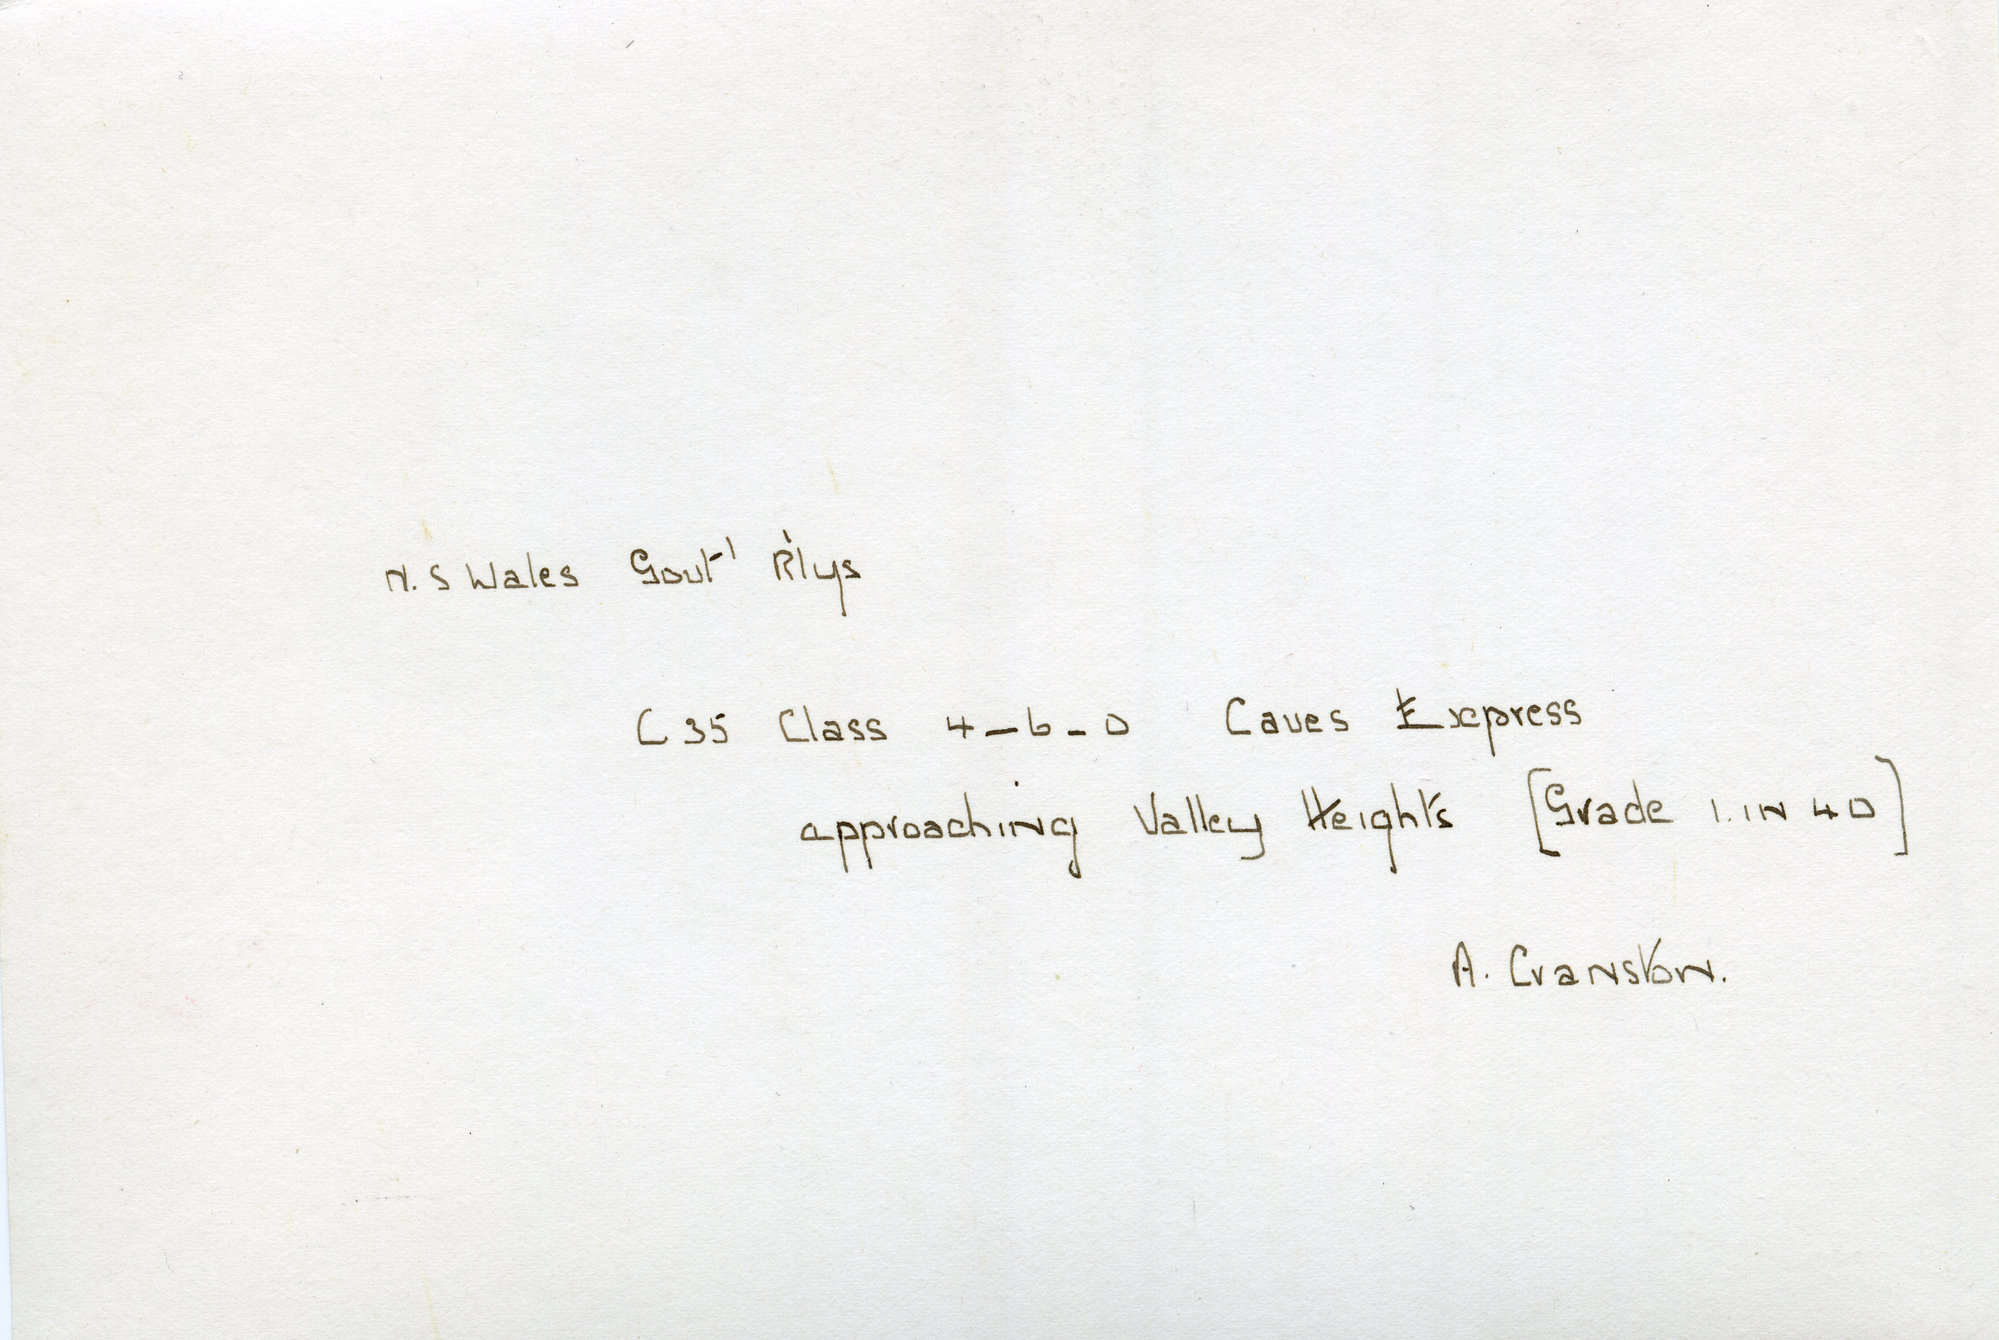 N. S Wales Govt' R'lys
C35 Class 4-6-0 Caves Express
approaching Valley Heights [Grade 1. IN 40]
A. Cranston.